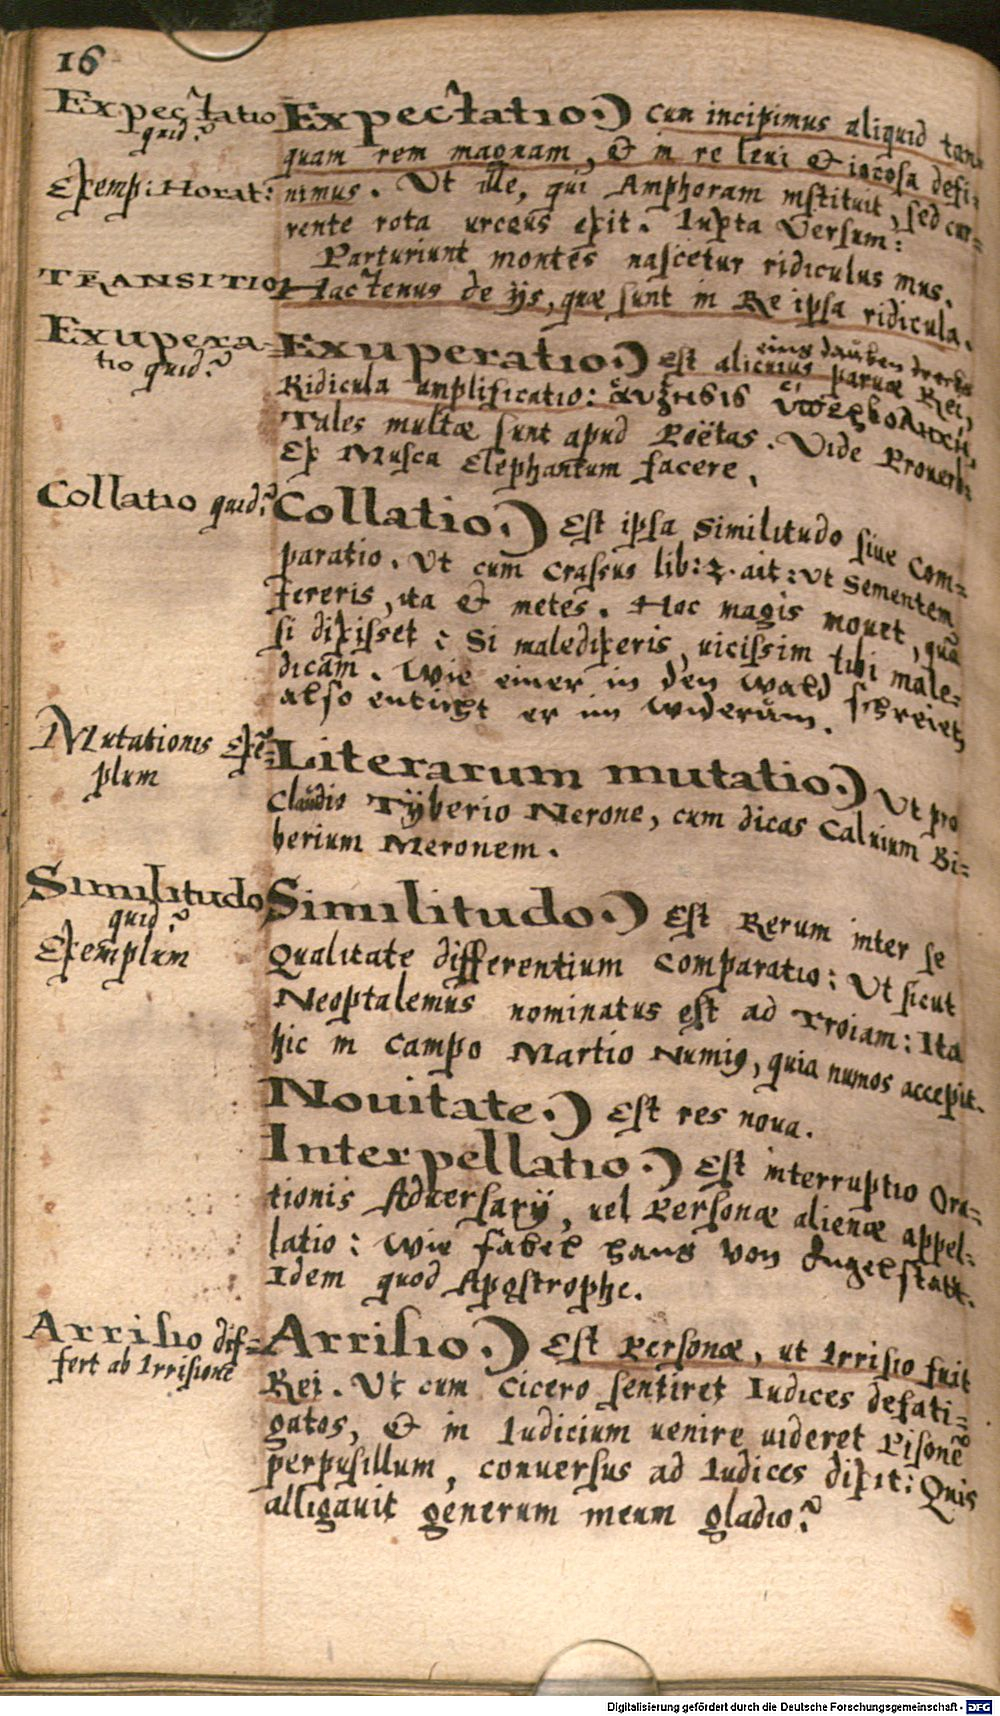 16
Expectatio
quid?
Exemp: Horat:
Expectatio.) Cum incipimus aliquid tan=
quam rem magnam, & in re leui & iocosa defi=
nimus. Ut ille, qui Amphoram instituit, sed cur=
rente rota urceus exit. Iuxta Versum:
Parturiunt montes nascetur ridiculus mus.
TRANSITIO
Hactenus de ijs, quæ sunt in Re ipsa ridicula.
Exupera=
tio quid?
eins dauben drecks
Exuperatio.) Est alicuius paruæ Rei,
Ridicula amplificatio: ἄυξησις
Tales multæ sunt apud Poëtas. Vide Prouerb:
Ex Musca Elephantum facere.
Collatio quid?
Collatio.) Est ipsa Similitudo siue Com=
paratio. Ut cum Crassus lib: 2. ait: Ut Sementem
feceris, ita & metes. Hoc magis mouet, quã
si dixisset: Si maledixeris, uicissim tibi male=
dicam. Wie einer in den Wald schreiet,
also enticht er im widerům.
Mutationis Exẽ=
plum
Literarum mutatio.) Ut pro
Claudio Tÿberio Nerone, cum dicas Caluium Bi=
berium Meronem.
Similitudo
quid?
Exemplum
Similitudo.) Est Rerum inter se
Qualitate differentium Comparatio: Ut sicut
Neoptalemus nominatus est ad Troiam: Ita
hic in Campo Martio Numig, quia numos accepit.
Nouitate.) Est res noua.
Interpellatio.) Est interruptio Ora=
tionis Aduersarij, uel Personæ alienæ appel=
latio: Wie Fabel hans von Angelstatt.
Idem quod Apostrophe.
Arrisio dif=
fert ab Irrisione
Arrisio.) Est Personæ, ut Irrisio fuit
Rei. Ut cum Cicero sentiret Iudices defati=
gatos, & in Iudicium uenire uideret Pisonẽ
perpusillum, conuersus ad Iudices dixit: Quis
alligauit generum meum gladio?
Digitalisierung gefördert durch die Deutsche Forschungsgemeinschaft - DFG